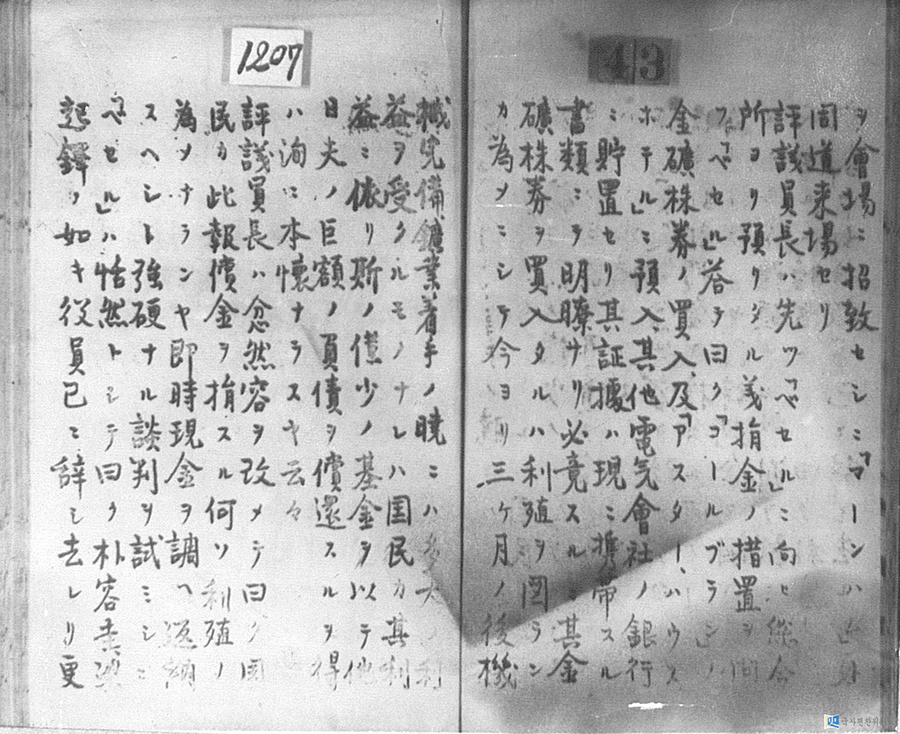 43
ヲ會場ニ招致セシニ「マーンハ
同道来場セリ
評議員長ハ先ツ「ベセル」ニ向セ総合
所ヨリ預リタル義捐金ノ措置ヲ問
フ「ベセル」答テ曰ク「コールブラン」ノ
金礦株券ノ買入及「アスターハウス
ホテル」ニ預入其他電気會社ノ銀行
ニ貯置セリ其証攄ハ現ニ携帯スル
書類ニヲ明瞭ナリ必竟スルニ其金
礦株券ヲ買入タルハ利殖ヲ図ラン
カ為メニシテ今ヨリ三ヶ月ノ後機
1207
械完備鑛業着手ノ暁ニハ多大ノ利
益ヲ受クルモノナレハ国民カ其利
益ニ依リ斯ノ僅少ノ基金ヲ以テ他
日夫ノ巨額ノ負債ヲ償還スルヲ得
ハ洵ニ本懐ナラスヤ云々
評議員長ハ忿然容ヲ改メテ曰ク国
民カ此報償金ヲ捐スル何ソ利殖ノ
為メナランヤ即時現金ヲ調ヘ返納
スヘシト強硬ナル談判ヲ試ミシニ
「ベセル」ハ恬然トシテ曰ク朴容圭梁
起鐸ノ如キ役員已ニ辞シ去レリ更
국사편찬위